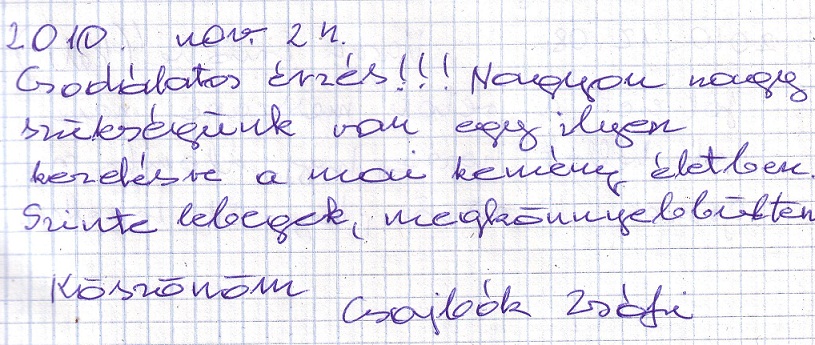 2010. nov. 24.
Csodálatos érzés!!! Nagyon nagy
szükségünk van egy ilyen
kezelésre a mai kemény életben.
Szinte lebegek, megkönnyebbültem
Köszönöm
Csajbók Zsófi